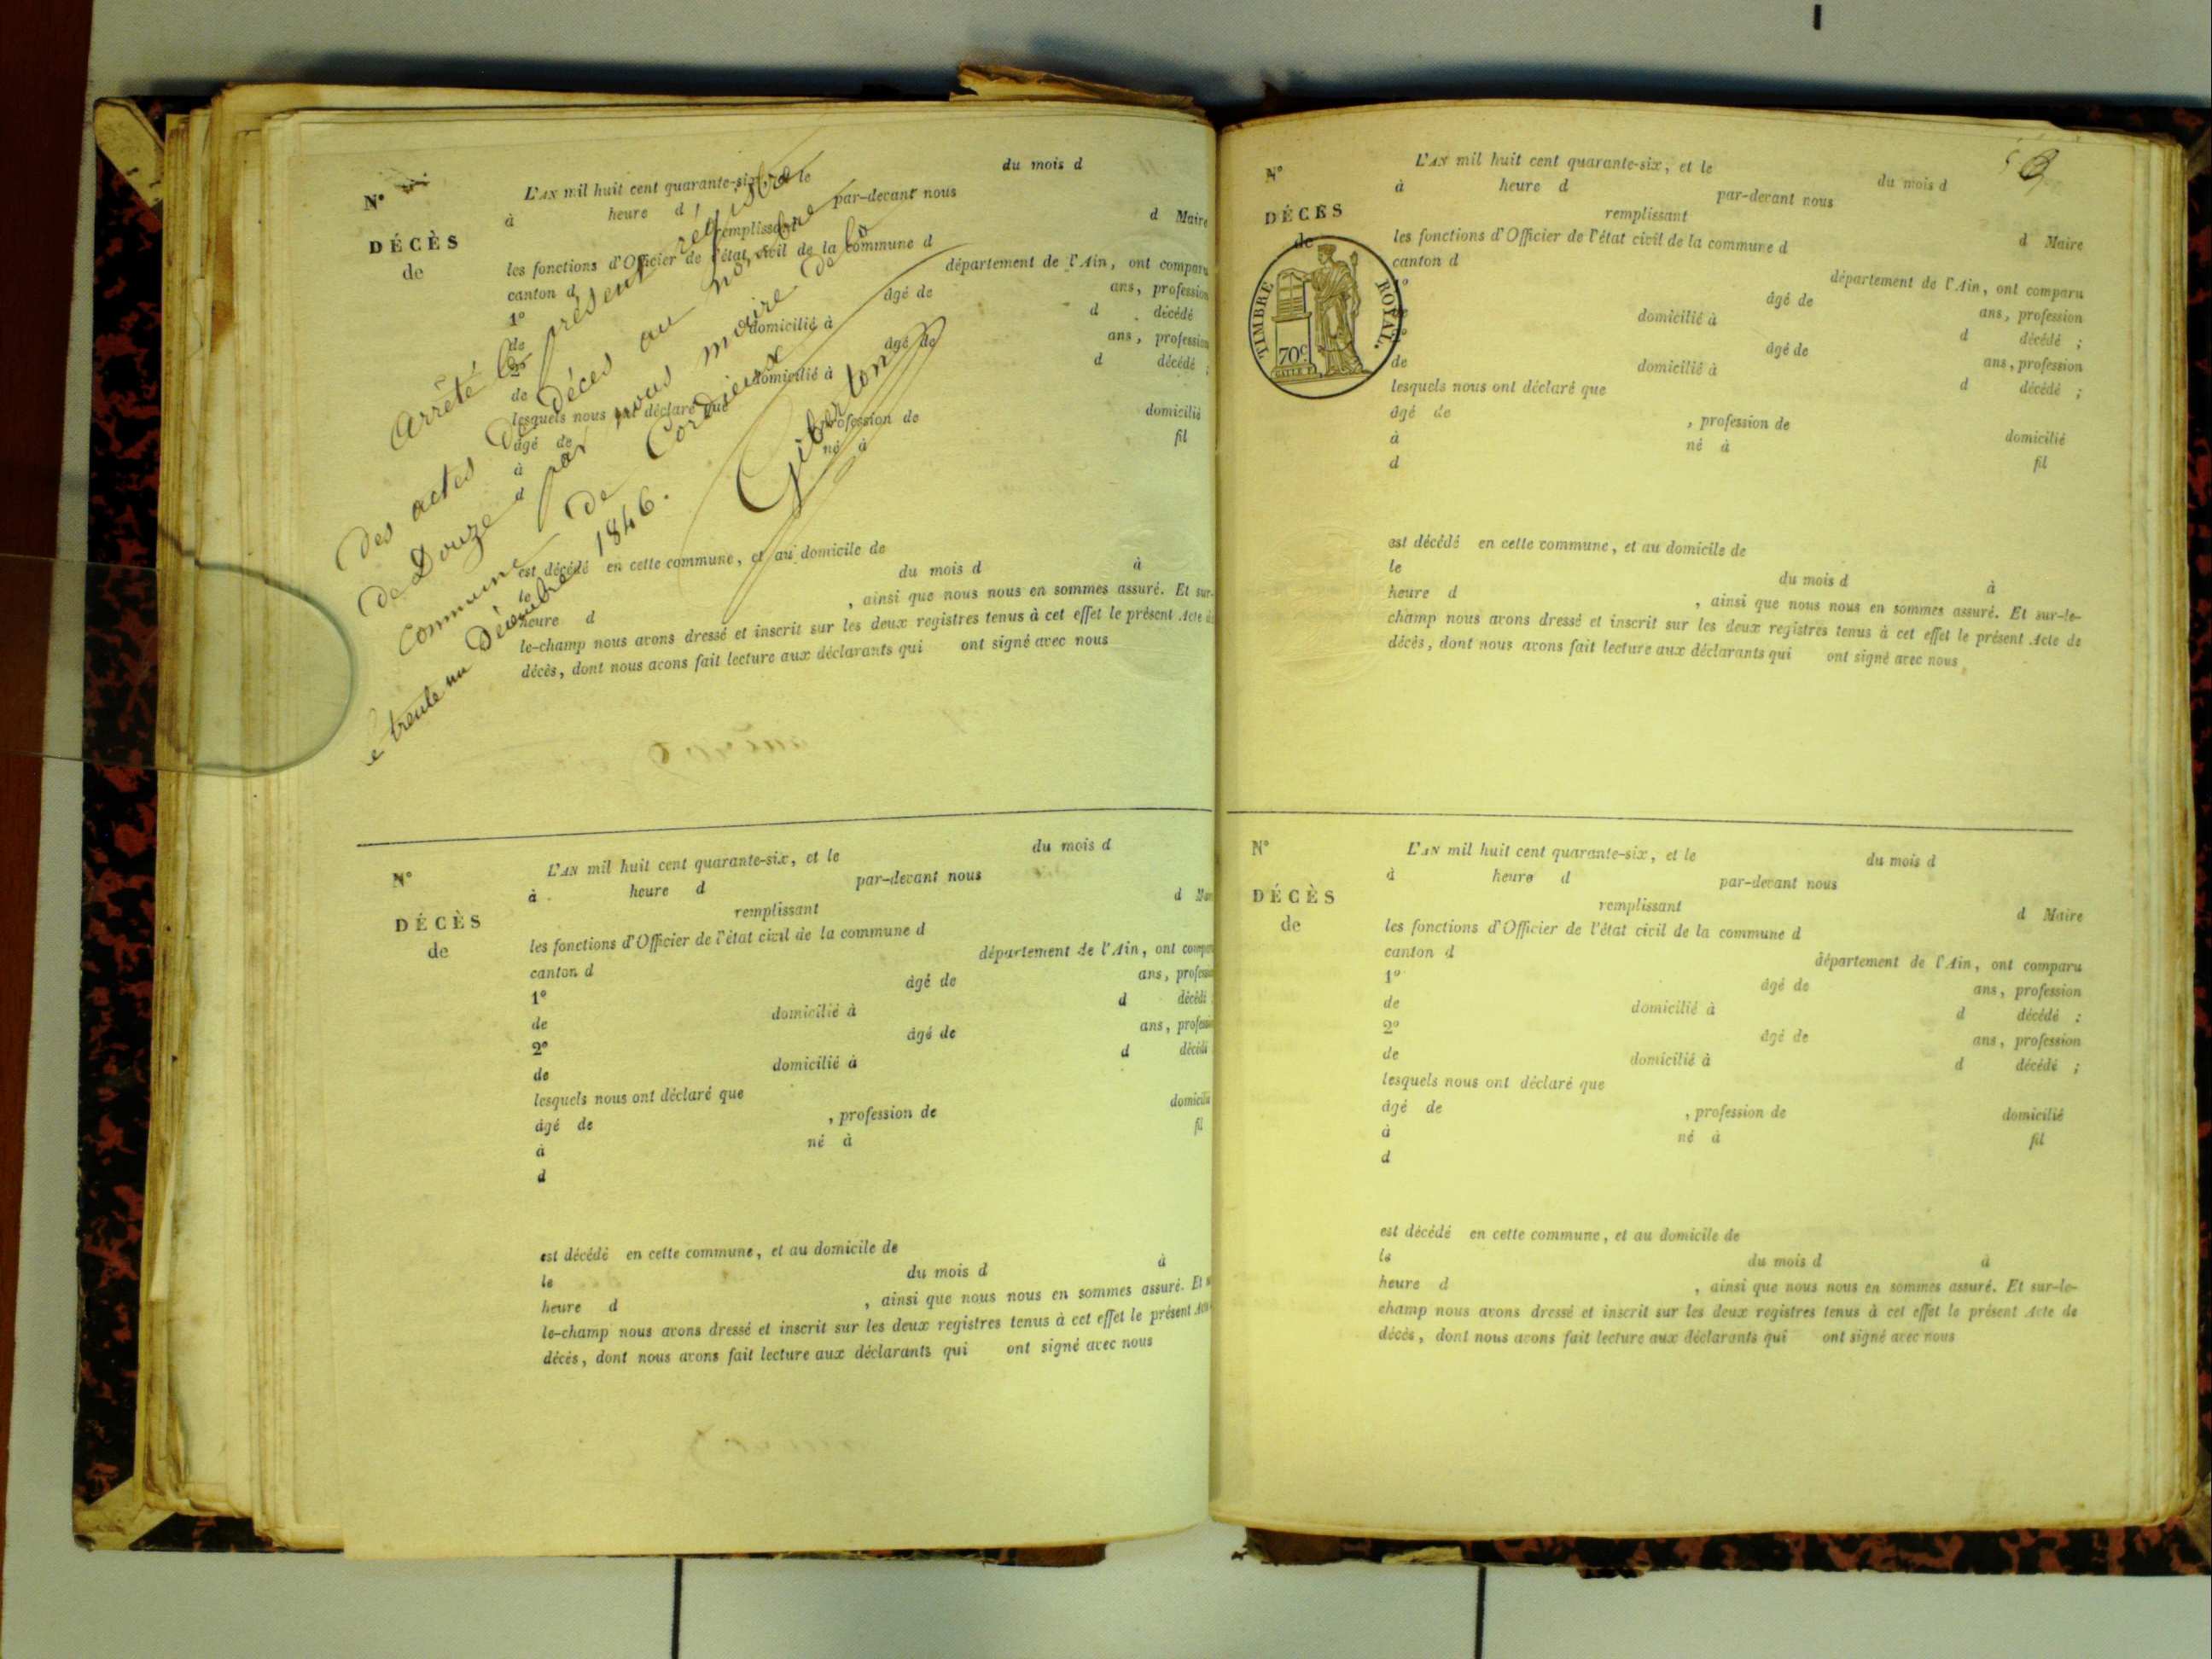 N°
DÉCÈS
de
L'AN mil huit cent quarante-six, et le
du mois d
à heure d par-devant nous
remplissant
d Maire
les fonctions d'Officier de l'état civil de la commune d
canton d
département de l'Ain, ont comparu
1° âgé de ans, profession
de domicilié à d décédé
2° âgé de ans, profession
de domicilié à d décédé ;
lesquels nous ont déclaré que
âgé de profession de domicilié
à né à fil
d
est décédé en cette commune, et au domicile de
le du mois d à
heure d , ainsi que nous nous en sommes assuré. Et sur-
le-champ nous avons dressé et inscrit sur les deux registres tenus à cet effet le présent Acte de
décès, dont nous avons fait lecture aux déclarants qui ont signé avec nous
Arrêté le présent registre
Des actes De Décès au nombre
de Douze par nous maire de la
Commune De Cordieux
le trente un Décembre 1846.
Giberton
N°
DÉCÈS
de
L'AN mil huit cent quarante-six, et le du mois d
à heure d par-devant nous
remplissant d Mai
les fonctions d'Officier de l'état civil de la commune d
canton d département de l'Ain, ont compa
1° âgé de ans, professi
de domicilié à d décédé
2° âgé de ans, professi
de domicilié à d décédé
lesquels nous ont déclaré que
âgé de , profession de domicilié
à né à fil
d
est décédé en cette commune, et au domicile de
le du mois d à
heure d , ainsi que nous nous en sommes assuré. Et s
le-champ nous avons dressé et inscrit sur les deux registres tenus à cet effet le présent Acte
décès, dont nous avons fait lecture aux déclarants qui ont signé avec nous
N°
DÉCÈS
de
TIMBRE ROYAL.
70c
L'AN mil huit cent quarante-six, et le du mois d
à heure d par-devant nous
remplissant d Maire
les fonctions d'Officier de l'état civil de la commune d
canton d département de l'Ain, ont comparu
âgé de ans, profession
domicilié à d décédé ;
âgé de ans, profession
de domicilié à d décédé ;
lesquels nous ont déclaré que
âgé de , profession de domicilié
à né à fil
d
est décédé en cette commune, et au domicile de
le du mois d à
heure d , ainsi que nous nous en sommes assuré. Et sur-le-
champ nous avons dressé et inscrit sur les deux registres tenus à cet effet le présent Acte de
décès, dont nous avons fait lecture aux déclarants qui ont signé avec nous
N°
DÉCÈS
de
L'AN mil huit cent quarante-six, et le du mois d
à heure d par-devant nous
remplissant d Maire
les fonctions d'Officier de l'état civil de la commune d
canton d département de l'Ain, ont comparu
1° âgé de ans, profession
de domicilié à d décédé :
2° âgé de ans, profession
de domicilié à d décédé ;
lesquels nous ont déclaré que
âgé de , profession de domicilié
à né à fil
d
est décédé en cette commune, et au domicile de
le du mois d à
heure d , ainsi que nous nous en sommes assuré. Et sur-le-
champ nous avons dressé et inscrit sur les deux registres tenus à cet effet le présent Acte de
décès, dont nous avons fait lecture aux déclarants qui ont signé avec nous